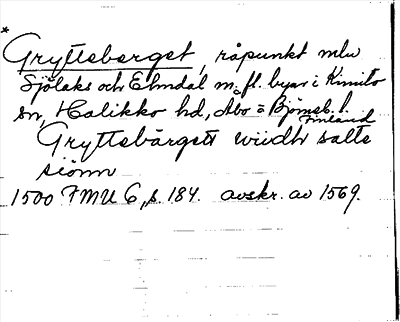 * Grytteberget, råpunkt mlw
Sjölaks och Elmdal m. fl. byar i Kimito
sn, Halikko hd, Åbo o Björneb. l.
Finland
Gryttebärgett wiidh salte
siönn
1500 FMU 6, s. 184. avskr. av 1569.